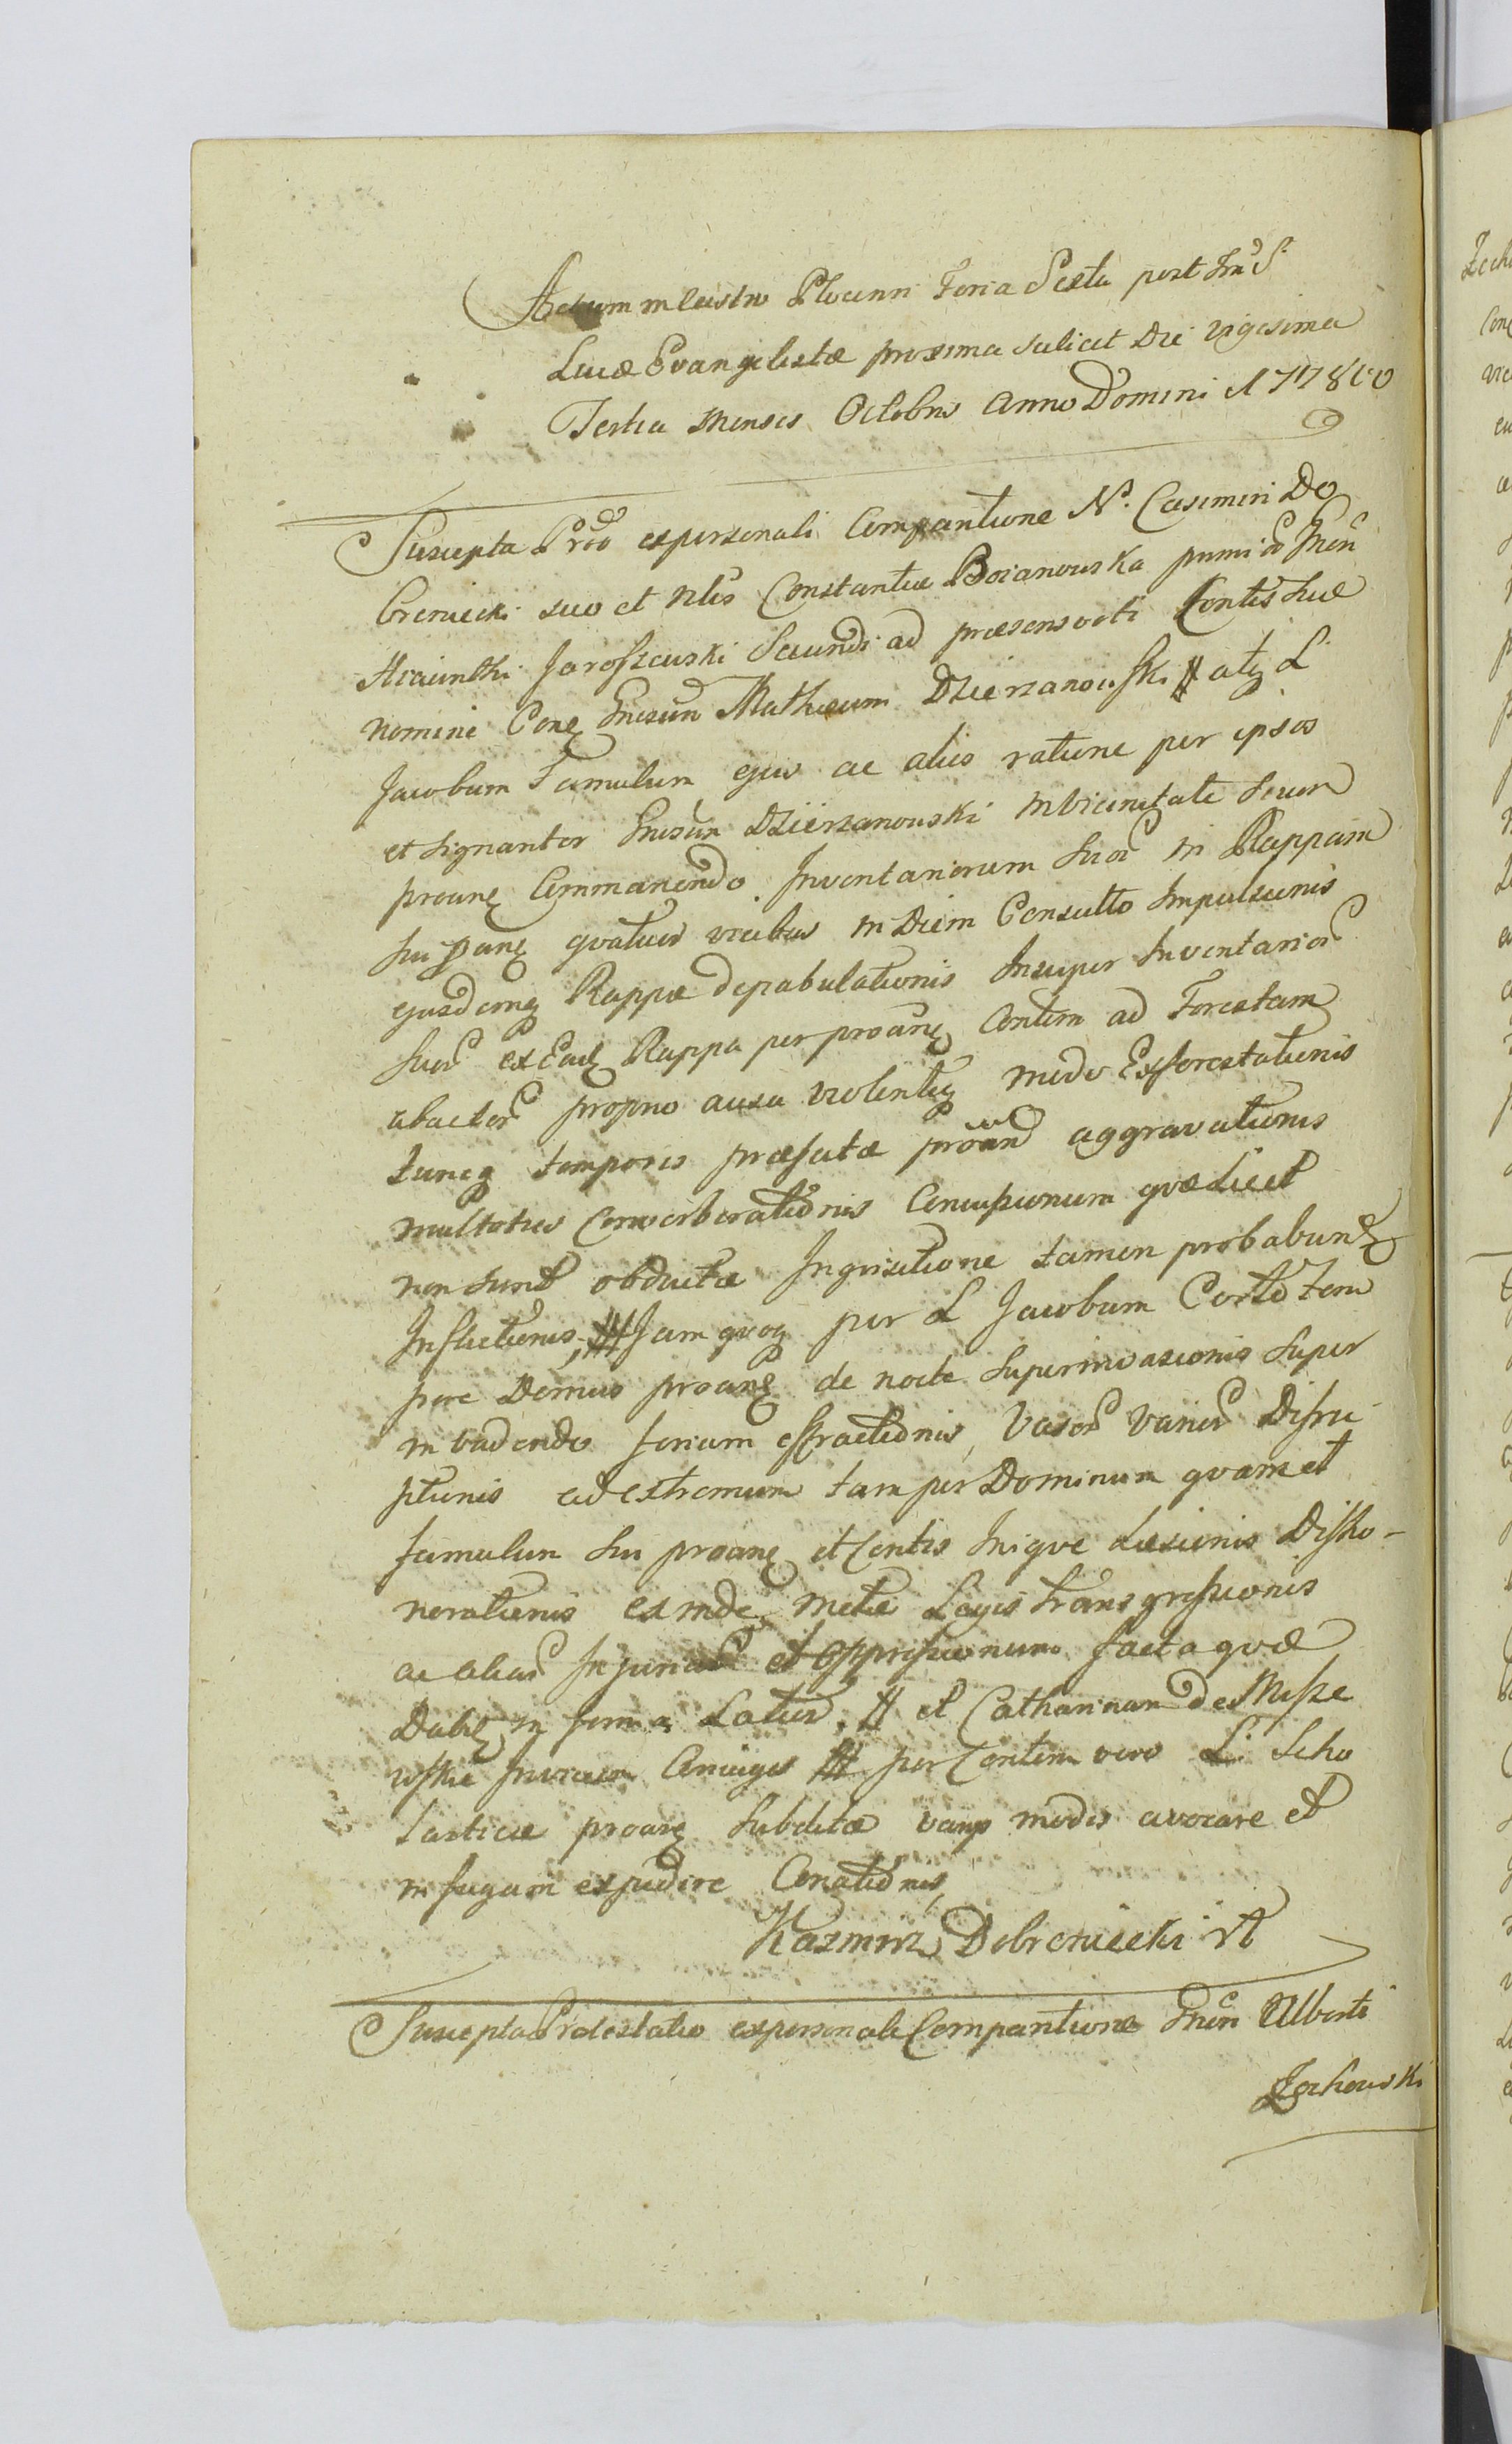 Actum in Castro Plocenn Feria Sexta post Fm S
Lucæ Evangelistæ proxima scilicet Die vigesima
Tertia Mensis Octobris Anno Domini 1778
Suscepta Prōo ex personali Comparitione N. Casimiri Do
breniecki suo et Nlis Constantiæ Boianowska primi ac Gnen
Hiacinthi Jaroszewski Secundi ad præsens voti Contis Suæ
nomine Conq Gnesum Mathæum Dzierzanowski # atq L
Jacobum Famulum ejus ac alios ratione per ipsos
et Signanter Gnesum Dzierzanowski in vicinitate Seven
proanq Commanendo Inventariorum Suor in Rappam
hu panq qvatuor vicibus in Diem Consulto Impulsionis
ejusdemq Rappæ depabulationis Insuper Inventarior
Suor ex Eadq Rappa per proanq Contem ad Forestam
abactor proprio ausu violentiq modo Exforestationis
tuncq temporis præfatæ proan aggravationis
multoties Converberationis Concussionum qvæ Licet
non sunt obductæ Inqvisitione tamen probabunt
Inflictionis, ### Jam qvoq per L Jacobum Certo tem
pore Domus proanq de nocte Superinvasionis Super
invadendo forium effractionis, Vasor varior Disru
ptionis ad extremum tam per Dominum qvam et
famulum hu proanq et Contis Iniqve Læsionis Disho-
norationis exinde metæ Legis transgressionis
ac aliar Injuriar et oppressionum facta qvæ
Dabit in forma Latior, # et Catharinam de
Conjuges ## per Contem vero L. Scho
lasticæ proanq Subditæ varys modis avocare et
in fugam expedire Conationis
Kazmirz Dobreniecki
Suscepta Protestatio ex personali Comparitione Gnen Alberti
Zochowski